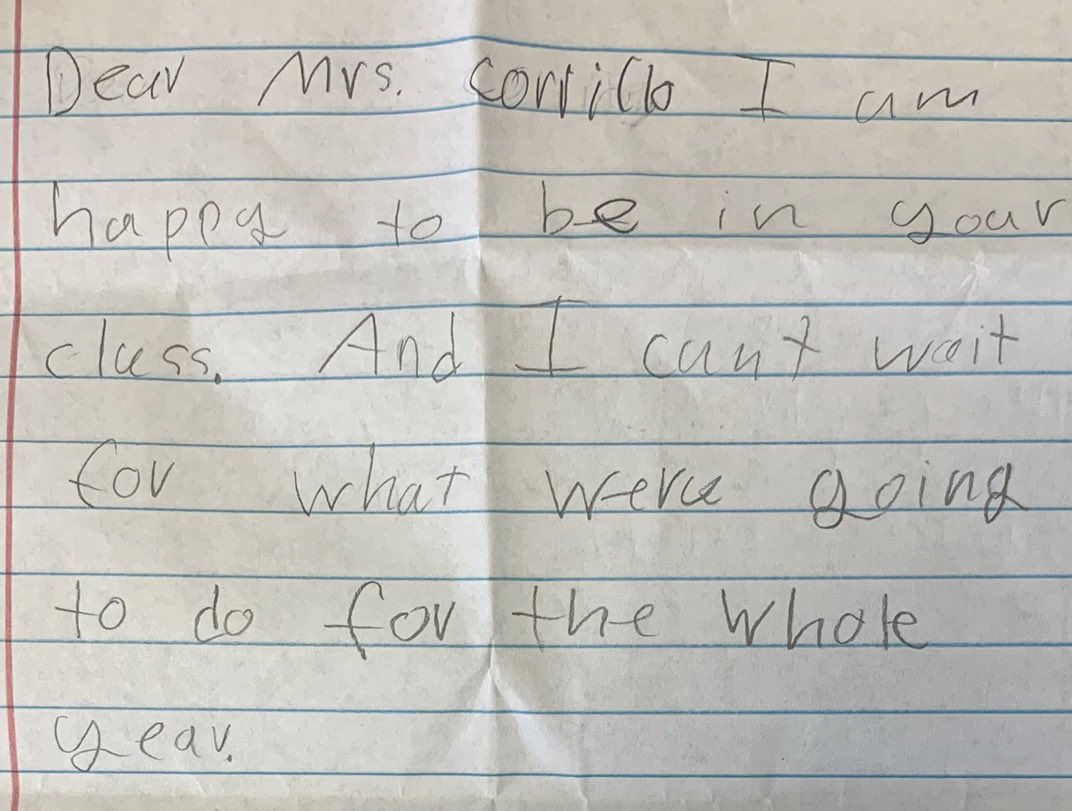 Dear Mrs. Corrillo I am
happy to be in your
class. And I can't wait
for what were going
to do for the whole
year.